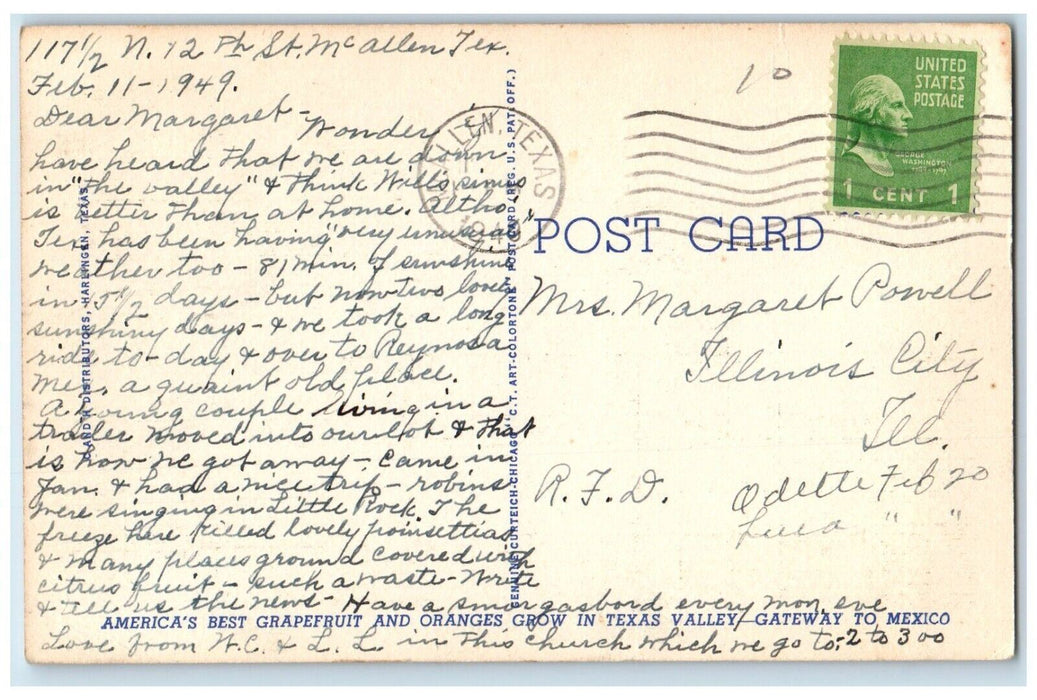 117 1/2 N. 12 th St. McAllen Tex.
Feb. 11-1949.
Dear Margaret - Wonder
have heard that we are down
in "the valley" & think Will's sinus
is better than at home. Altho,
Tex has been having "very unusual"
weather too - 81 min. of sunshine
in 15 1/2 days - but now two lovely
sunshiny days - & we took a long
ride to-day & over to Reynosa
Mex. a quaint old place.
A young couple living in a
trailer moved into our lot & that
is how we got away - Came in
Jan. & had a nice trip - robins
were singing in Little Rock. The
freeze here killed lovely poinsettias
& many places ground covered with
citrus fruit - such a waste - Write
& tell us the news - Have a smorgasbord every mon. eve
AMERICA'S BEST GRAPEFRUIT AND ORANGES GROW IN TEXAS VALLEY—GATEWAY TO MEXICO
Love from W.C. & L.L. in this church which we go to: 2 to 300
DISTRIBUTORS, HARLINGEN, TEXAS
GENUINE CURTEICH-CHICAGO "C.T. ART-COLORTONE" POST CARD (REG. U.S. PAT. OFF.)
ALLEN, TEXAS
10
UNITED
STATES
POSTAGE
GEORGE
WASHINGTON
1 CENT 1
POST CARD
Mrs. Margaret Powell
Illinois City
Ill.
R.F.D.
Odette Feb 20
" "